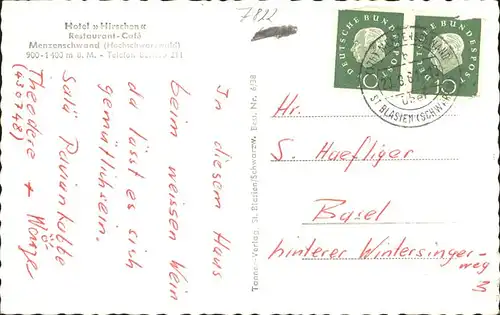 Hotel »Hirschen«
Restaurant-Café
Menzenschwand (Hochschwarzwald)
900-1400 m ü. M. - Telefon
7822
DEUTSCHE BUNDESPOST
DEUTSCHE BUNDESPOST
10
10
ST. BLASIEN (SCHWARZW
In diesem Haus
beim weissen Wein
da lässt es sich
gemütlichsein.
Salü
Theodere +
(430748)
Tannen-Verlag, St. Blasien/Schwarzw. Best. Nr. 6/38
Hr.
S. Haefliger
Basel
hinterer Wintersinger-
weg
3